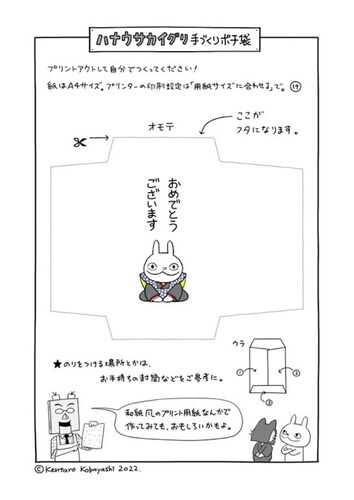 ハナウサカイグリ手づくりポチ袋
プリントアウトして自分でつくってください!
紙はA4サイズ。プリンターの印刷設定は「用紙サイズに合わせる」で。
オモテ
ここが
フタになります。
おめでとう
ございます
★のりをつける場所とかは、
お手持ちの封筒などをご参考に。
ウラ
①
②
③
和紙風のプリント用紙なんかで
作ってみても、おもしろいかもよ。
©Kentaro Kobayashi 2022.